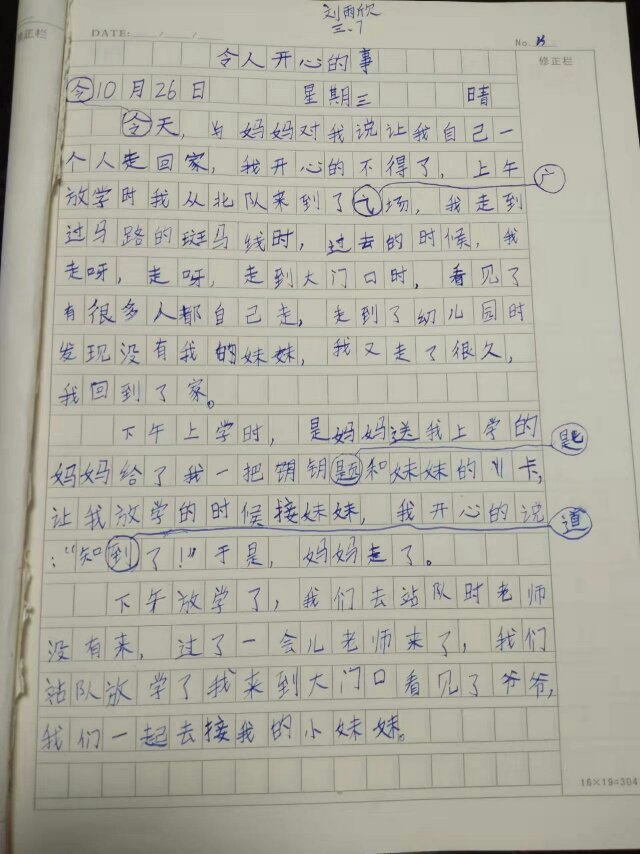 刘雨欣
三.7
修正栏 DATE: No.
修正栏
令人开心的事
今10月26日 星期三 晴
今天，与妈妈对我说让我自己一
个人走回家，我开心的不得了，上午
广
放学时我从北队来到了飞场，我走到
过马路的斑马线时，过去的时候，我
走呀，走呀，走到大门口时，看见了
有很多人都自己走，走到了幼儿园时
发现没有我的妹妹，我又走了很久，
我回到了家。
下午上学时，是妈妈送我上学的
匙
妈妈给了我一把钥钥题和妹妹的卡，
让我放学的时候接妹妹，我开心的说
道
：“知到了！”于是，妈妈走了。
下午放学了，我们去站队时老师
没有来，过了一会儿老师来了，我们
站队放学了我来到大门口看见了爷爷，
我们一起去接我的小妹妹。
16×19=304